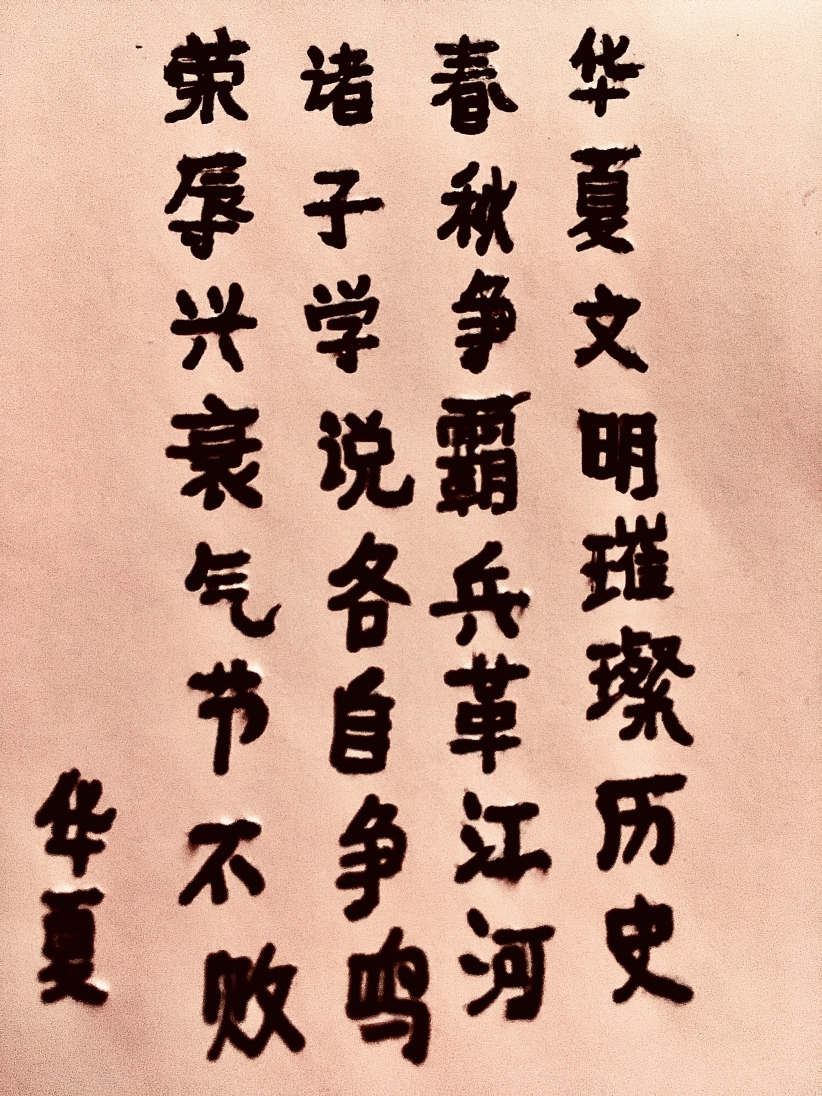 华夏文明璀璨历史
春秋争霸兵革江河
诸子学说各自争鸣
荣辱兴衰气节不败
华夏